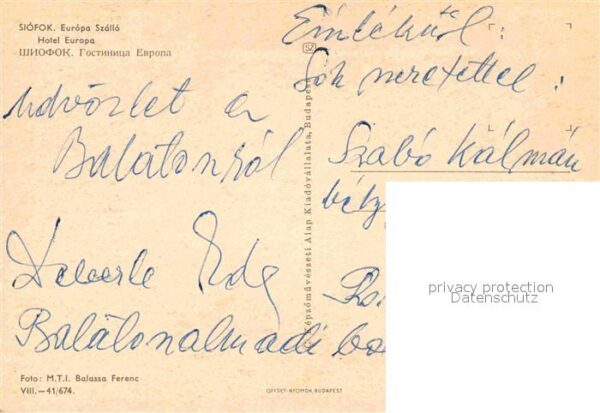 SIÓFOK. Európa Szálló
Hotel Europa
ШИОФОК. Гостиница Европа
Emlékül:
Sok szeretettel:
Üdvözlet a
Balatonról
Szabó Kálmán
Balatonalmádi
Képzőművészeti Alap Kiadóvállalata, Budapest
privacy protection
Datenschutz
Foto: M.T.I. Balassa Ferenc
VIII.—41/674.
OFFSET-NYOMDA, BUDAPEST